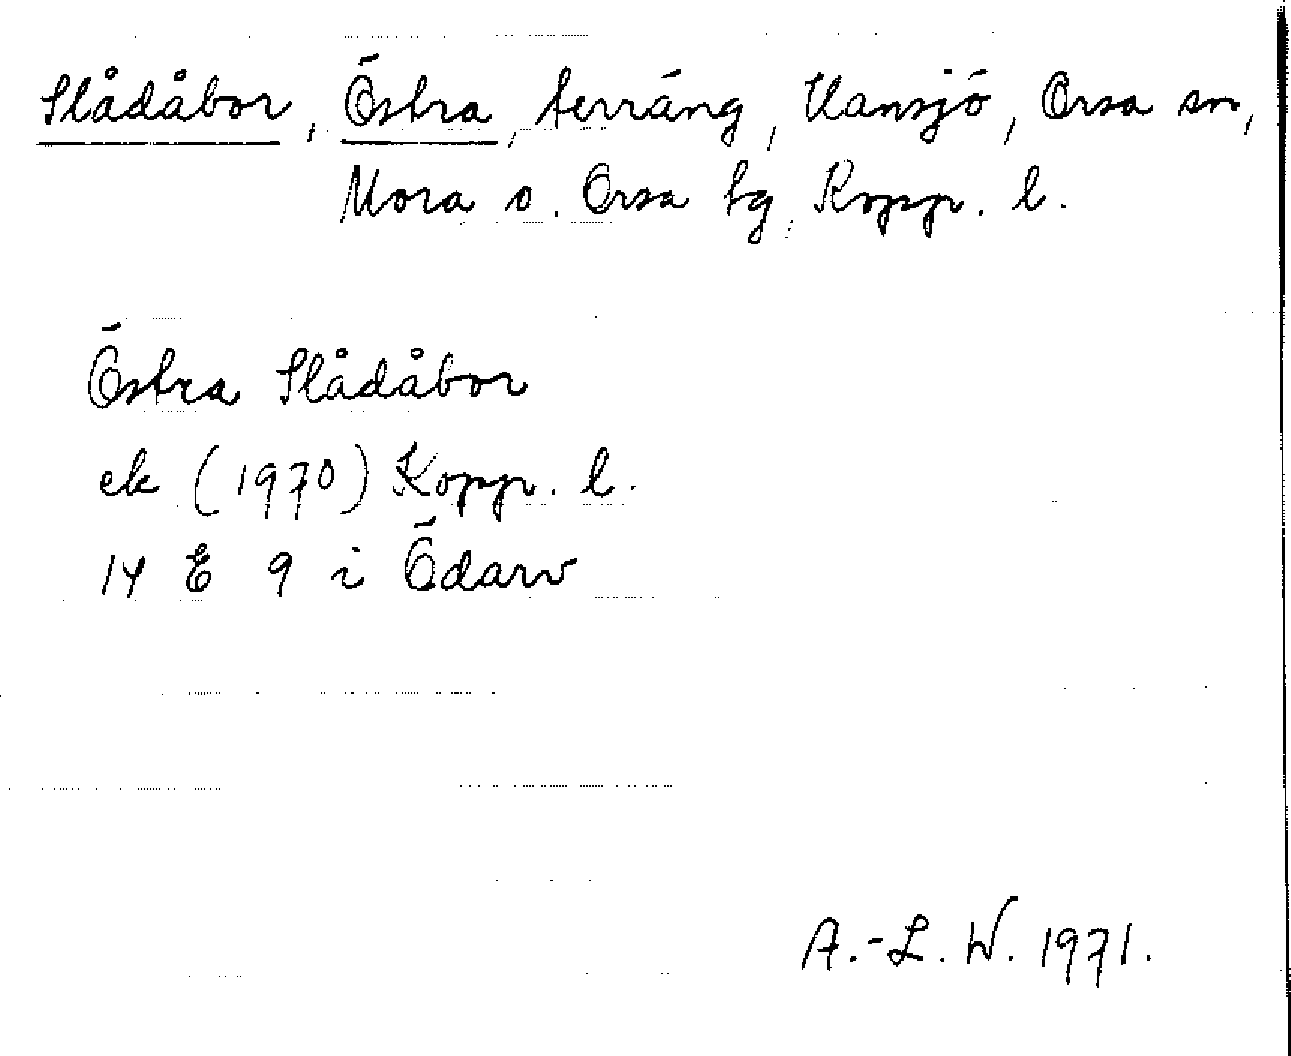 Slådåbor, Östra, terräng, Hansjö, Orsa sn,
Mora o. Orsa tg, Kopp. l.
Östra Slådåbor
ek (1970) Kopp. l.
14 E 9 i Ödarv
A.-L. W. 1971.